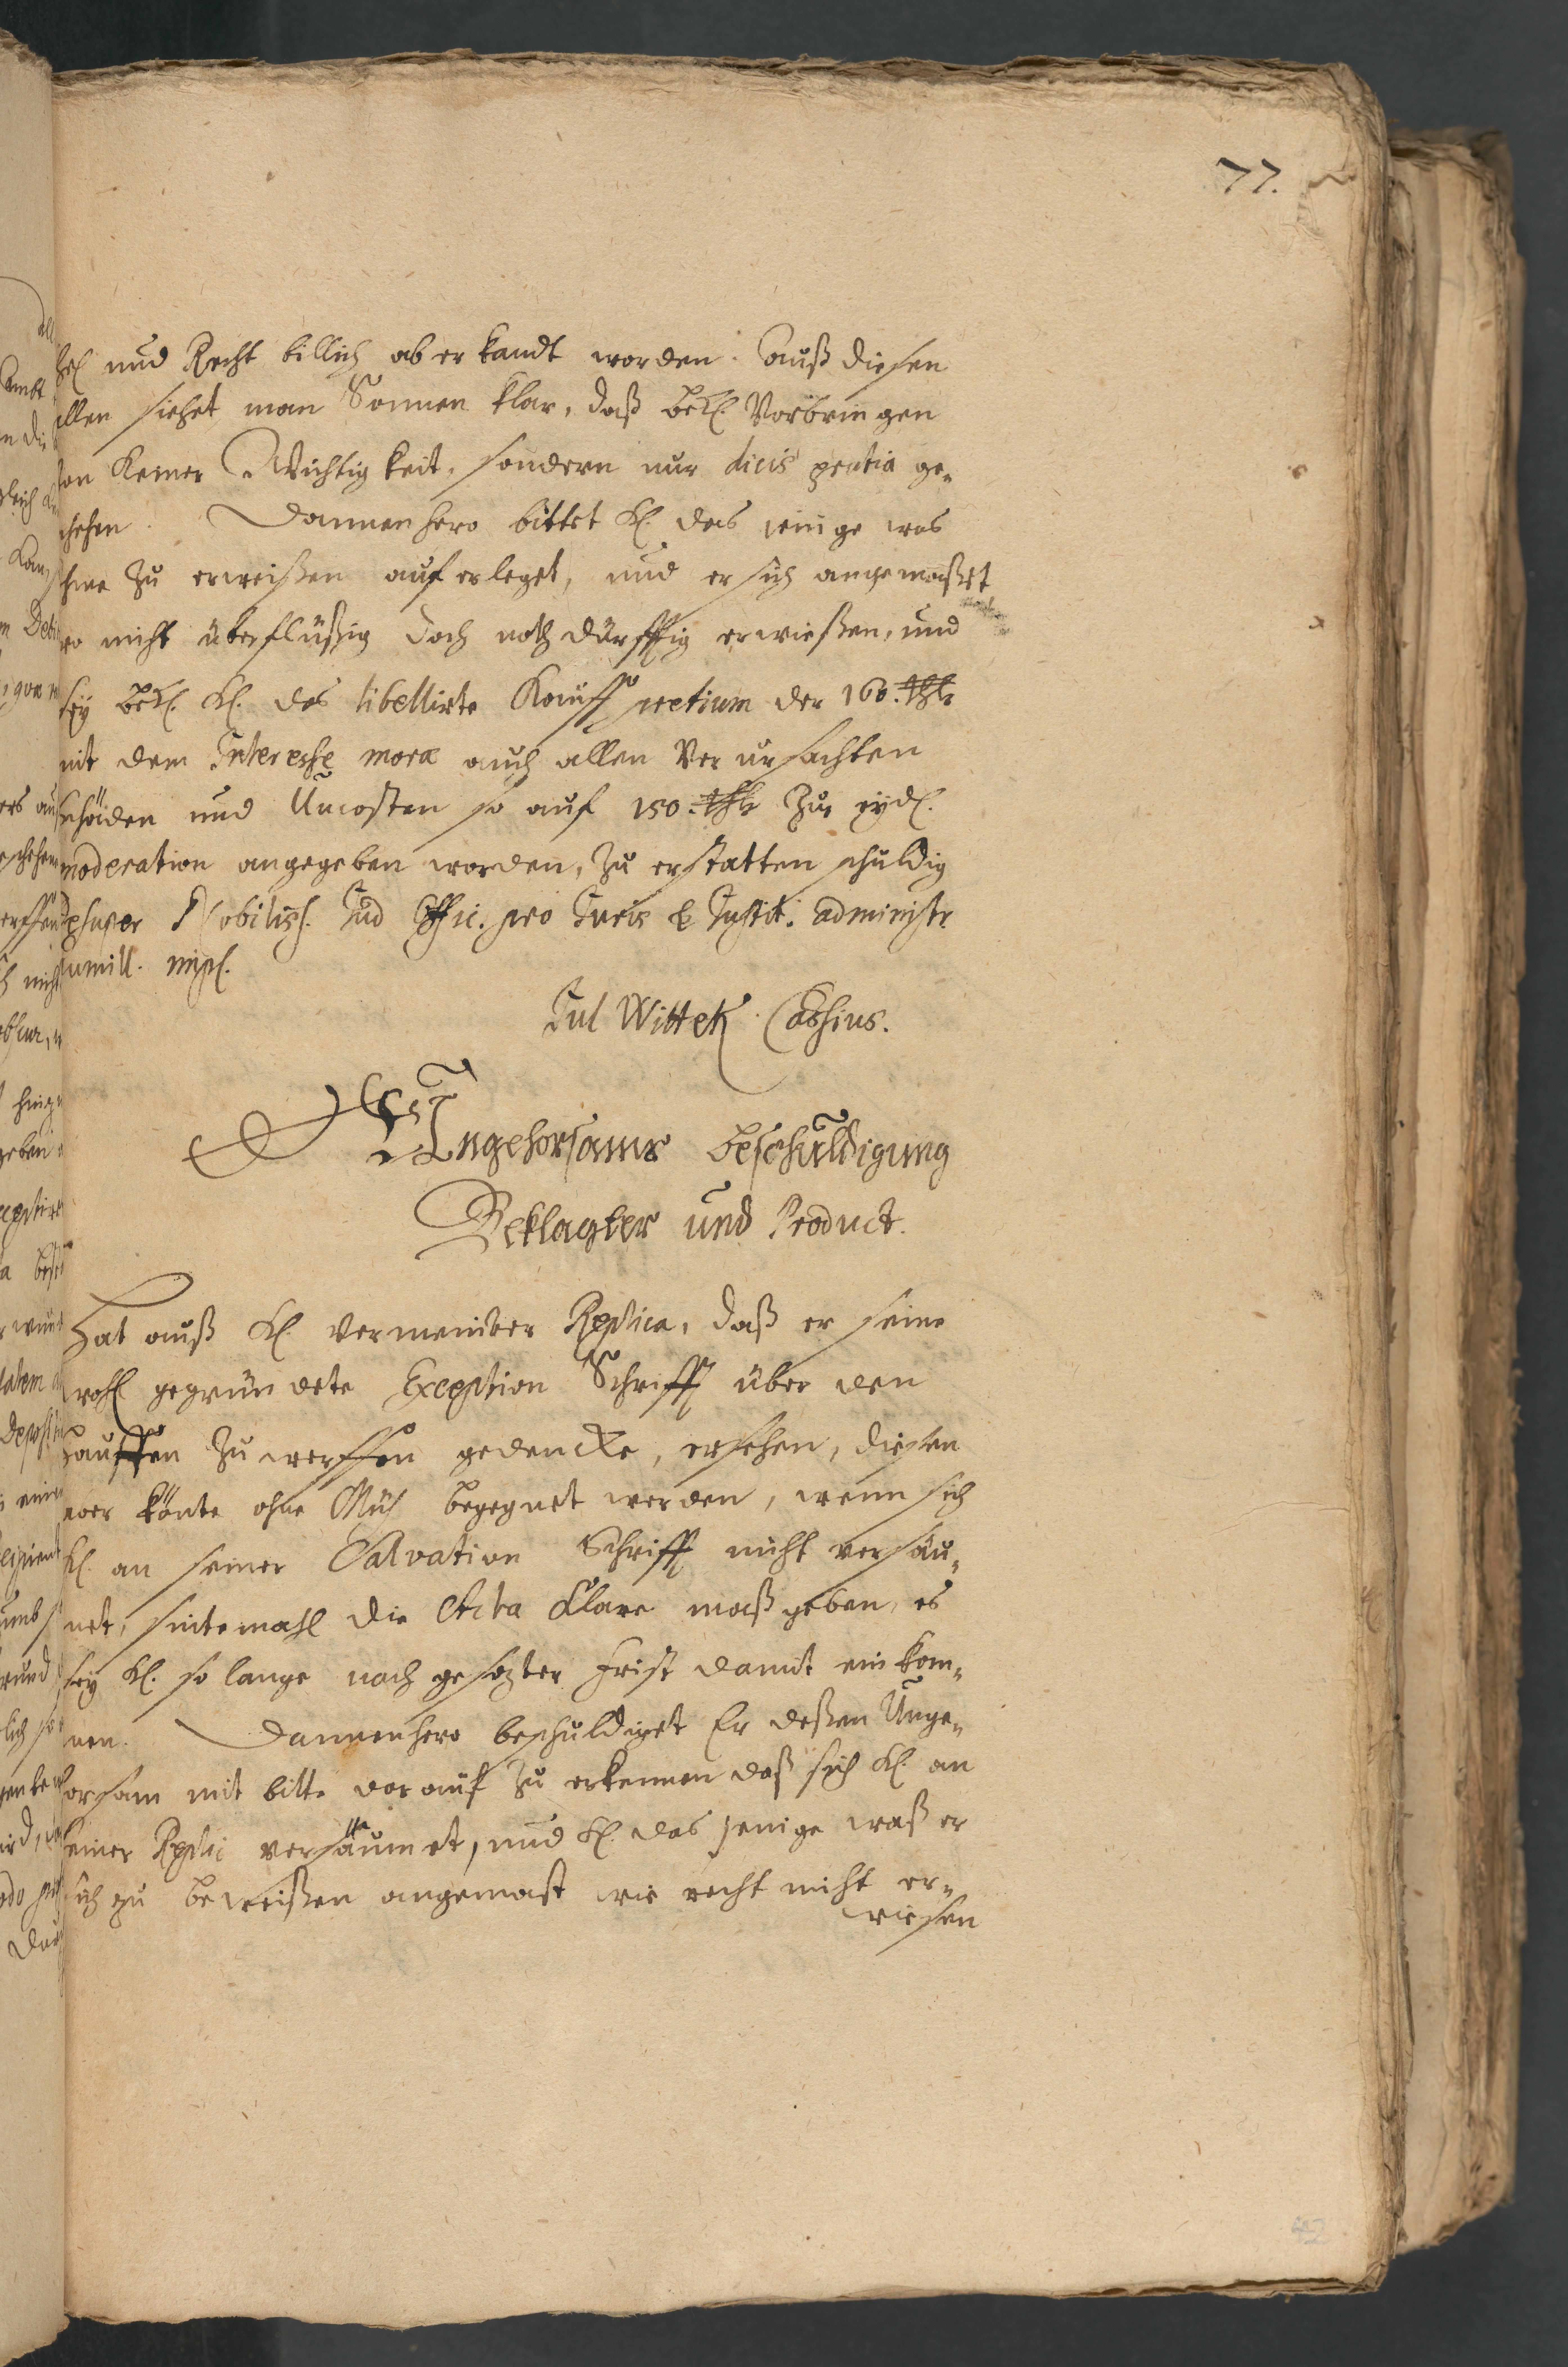 77.
und Recht billich aberkandt worden. Auß diesen
allen siehet man Sonnen klar, daß Bekl. Vorbringen
von Keiner Wichtigkeit, sondern nur dicis gratia ge-
schehen. Dannenhero bittet Kl. das jenige was
ihme zu erweißen auferleget, und er sich angemaßet
wo nicht überflüßig doch nothdürfftig erwießen, und
sey Bekl. Kl. das libellirte Kauff pretium der 160. thlr
mit dem Interesse moræ auch allen verursachten
Schäden und Uncosten so auf 150. thlr zur rydl.
moderation angegeben worden, zu erstatten schuldig
Nobiliss. Jud Offic. pro Juris & Justit. administr
humill. impl.
Jul Wittek Cassius.
Ungehorsams beschuldigung
Beklagter und Product.
Hat auß Kl. vermeinter Replica, daß er seine
wohl gegründete Exception Schrifft über den
Hauffen zu werffen gedencke, ersehen, diesen
aber könte ohne Müh begegnet werden, wenn sich
Kl. an seiner Salvation Schrifft nicht versäu-
met, sintemahl die Acta klare maß geben, es
sey Kl. so lange nach gesezter Frist damit einkom-
men. Dannenhero beschuldiget Er deßen Unge-
horsam mit bitte darauf zu erkennen daß sich Kl. an
seiner Replic versäumet, und Kl. das jenige waß er
sich zu beweißen angemast wie recht nicht er-
wiesen